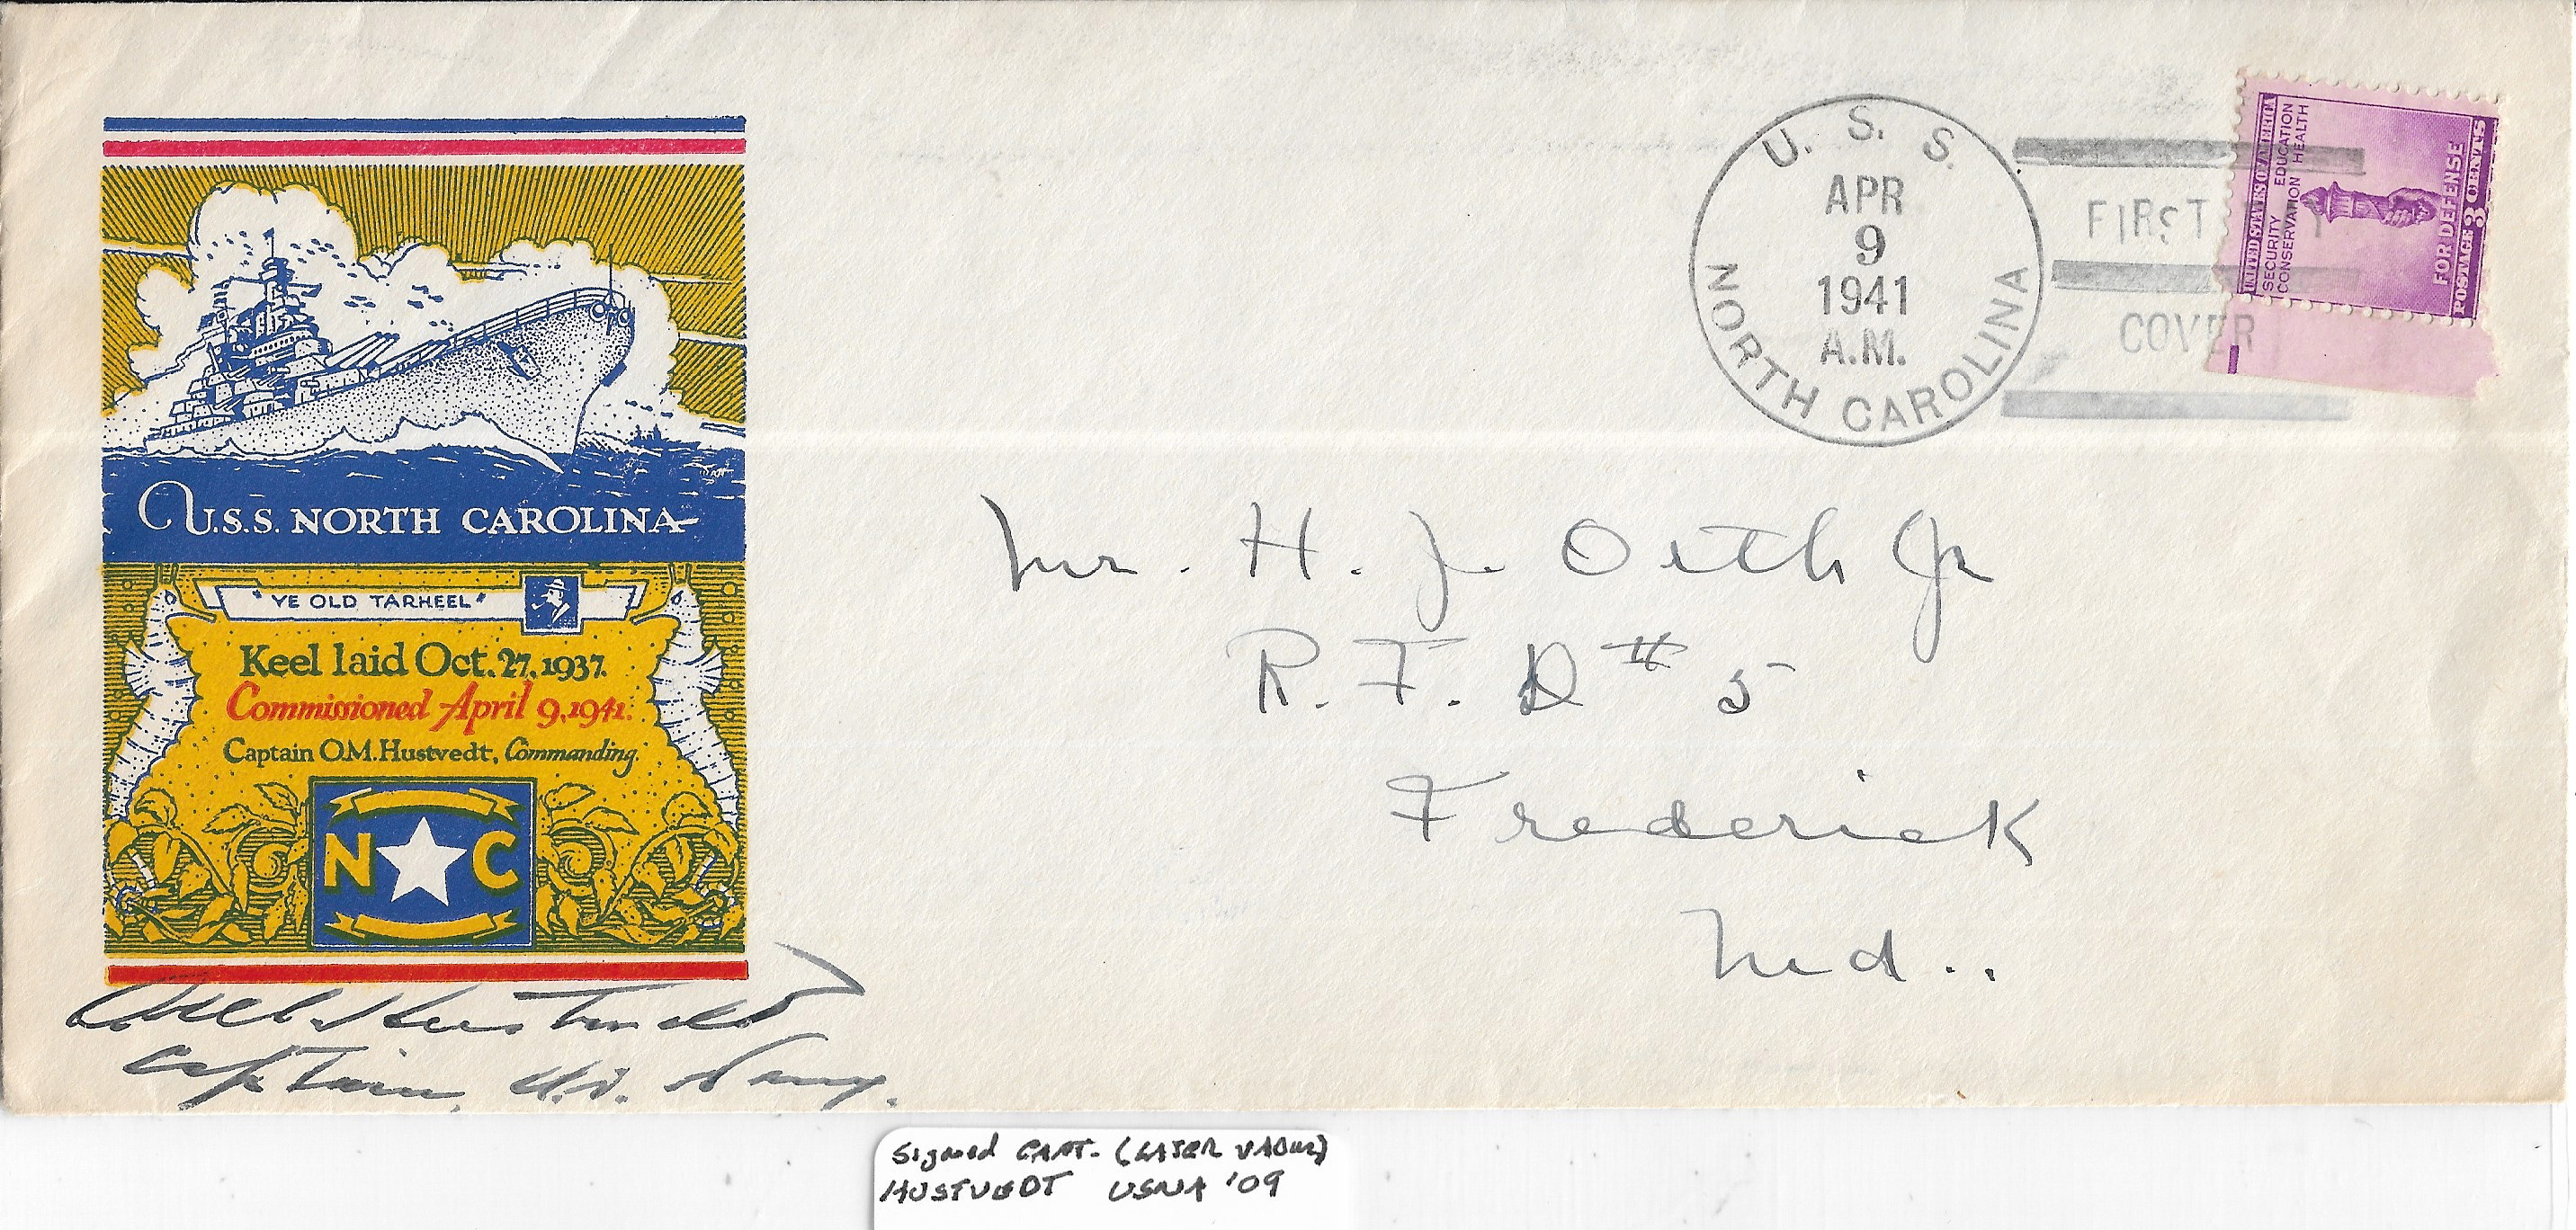 U. S. S.
NORTH CAROLINA
APR
9
1941
A.M.
FIRST
COVER
UNITED STATES OF AMERICA
SECURITY EDUCATION
CONSERVATION HEALTH
FOR DEFENSE
POSTAGE 3 CENTS
U.S.S. NORTH CAROLINA
"YE OLD TARHEEL"
Keel laid Oct. 27, 1937.
Commissioned April 9, 1941.
Captain O.M. Hustvedt, Commanding.
N C
Mr. H. J. Orth Jr
R. F. D # 5
Frederick
Md..
Hustvedt
Captain, U.S. Navy.
Signed CAPT. (LATER VADM)
HUSTVEDT USNA '09